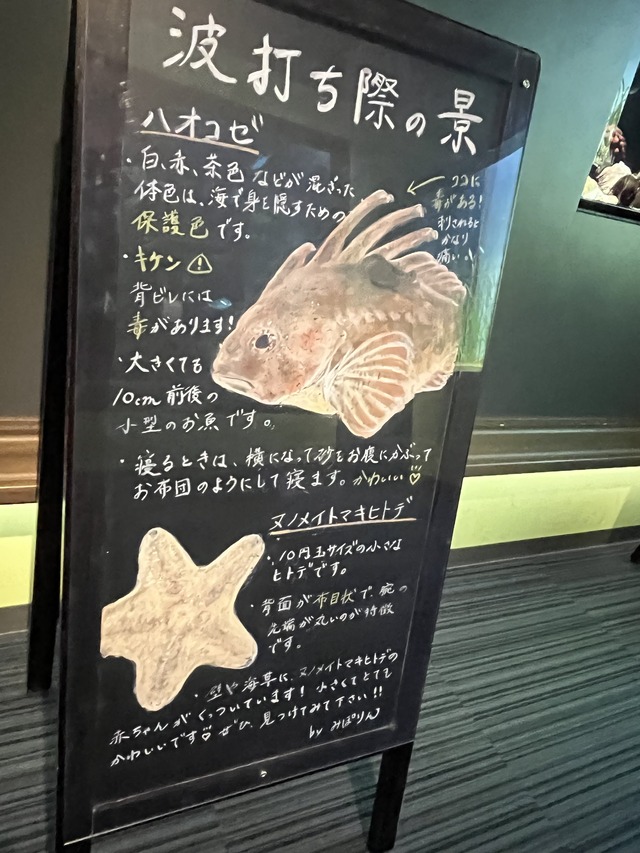 波打ち際の景
ハオコゼ
・白、赤、茶色などが混ざった
体色は、海で身を隠すための
保護色です。
ココに
毒がある!
刺されると
かなり
痛い
・キケン
背ビレには
毒があります!
・大きくても
10cm前後の
小型のお魚です。
・寝るときは、横になって砂をお腹にかぶって
お布団のようにして寝ます。かわいい♡
ヌノメイトマキヒトデ
・10円玉サイズの小さな
ヒトデです。
・背面が布目状で、腕の
先端が丸いのが特徴
です。
・壁や海草に、ヌノメイトマキヒトデの
赤ちゃんがくっついています!小さくてとても
かわいいです♡ぜひ、見つけてみて下さい!!
by みぽりん